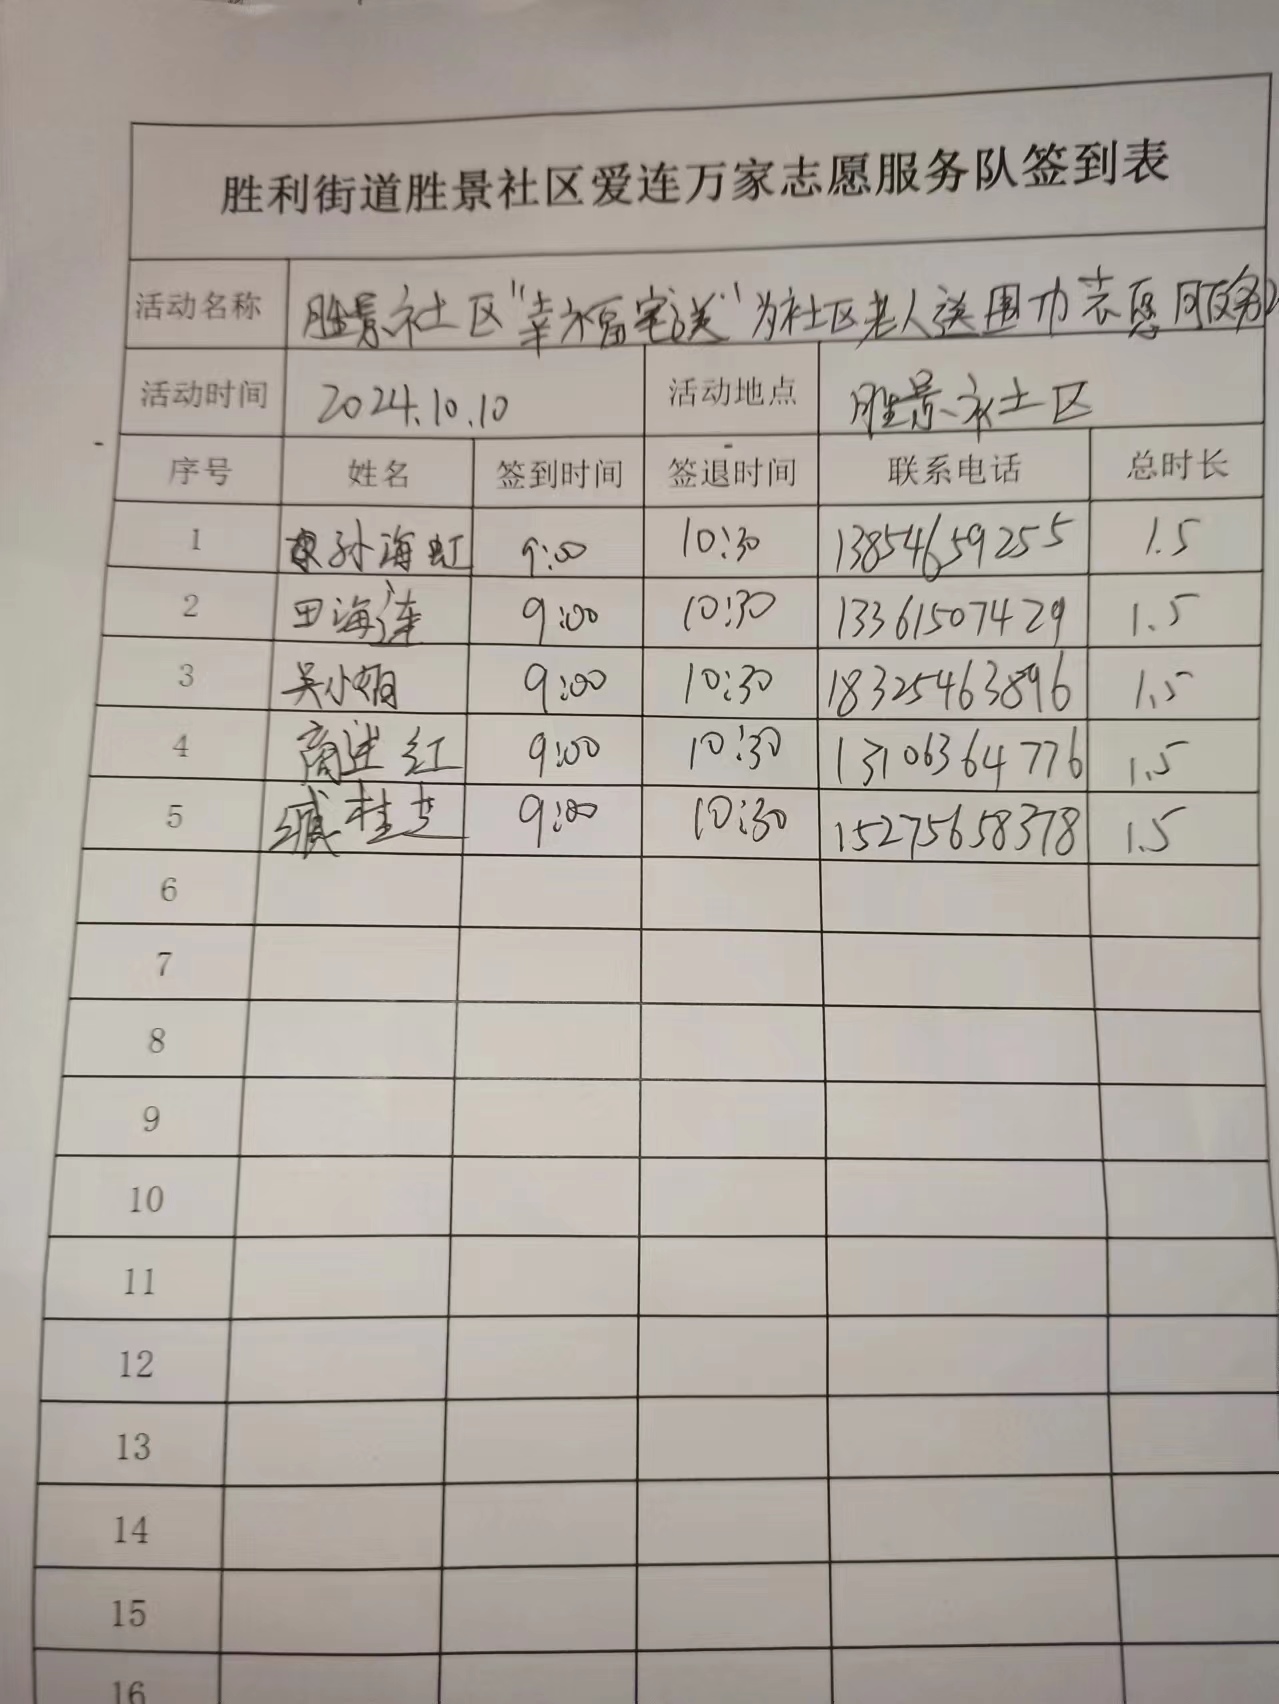 胜利街道胜景社区爱连万家志愿服务队签到表
活动名称 胜景社区"幸福宅送"为社区老人送围巾志愿服务
活动时间 2024.10.10 活动地点 胜景社区
序号 姓名 签到时间 签退时间 联系电话 总时长
1 孙海虹 9:00 10:30 13854659255 1.5
2 田海莲 9:00 10:30 13361507429 1.5
3 吴小娟 9:00 10:30 18325463896 1.5
4 商进红 9:00 10:30 13106364776 1.5
5 臧桂芝 9:00 10:30 15275658378 1.5
6
7
8
9
10
11
12
13
14
15
16